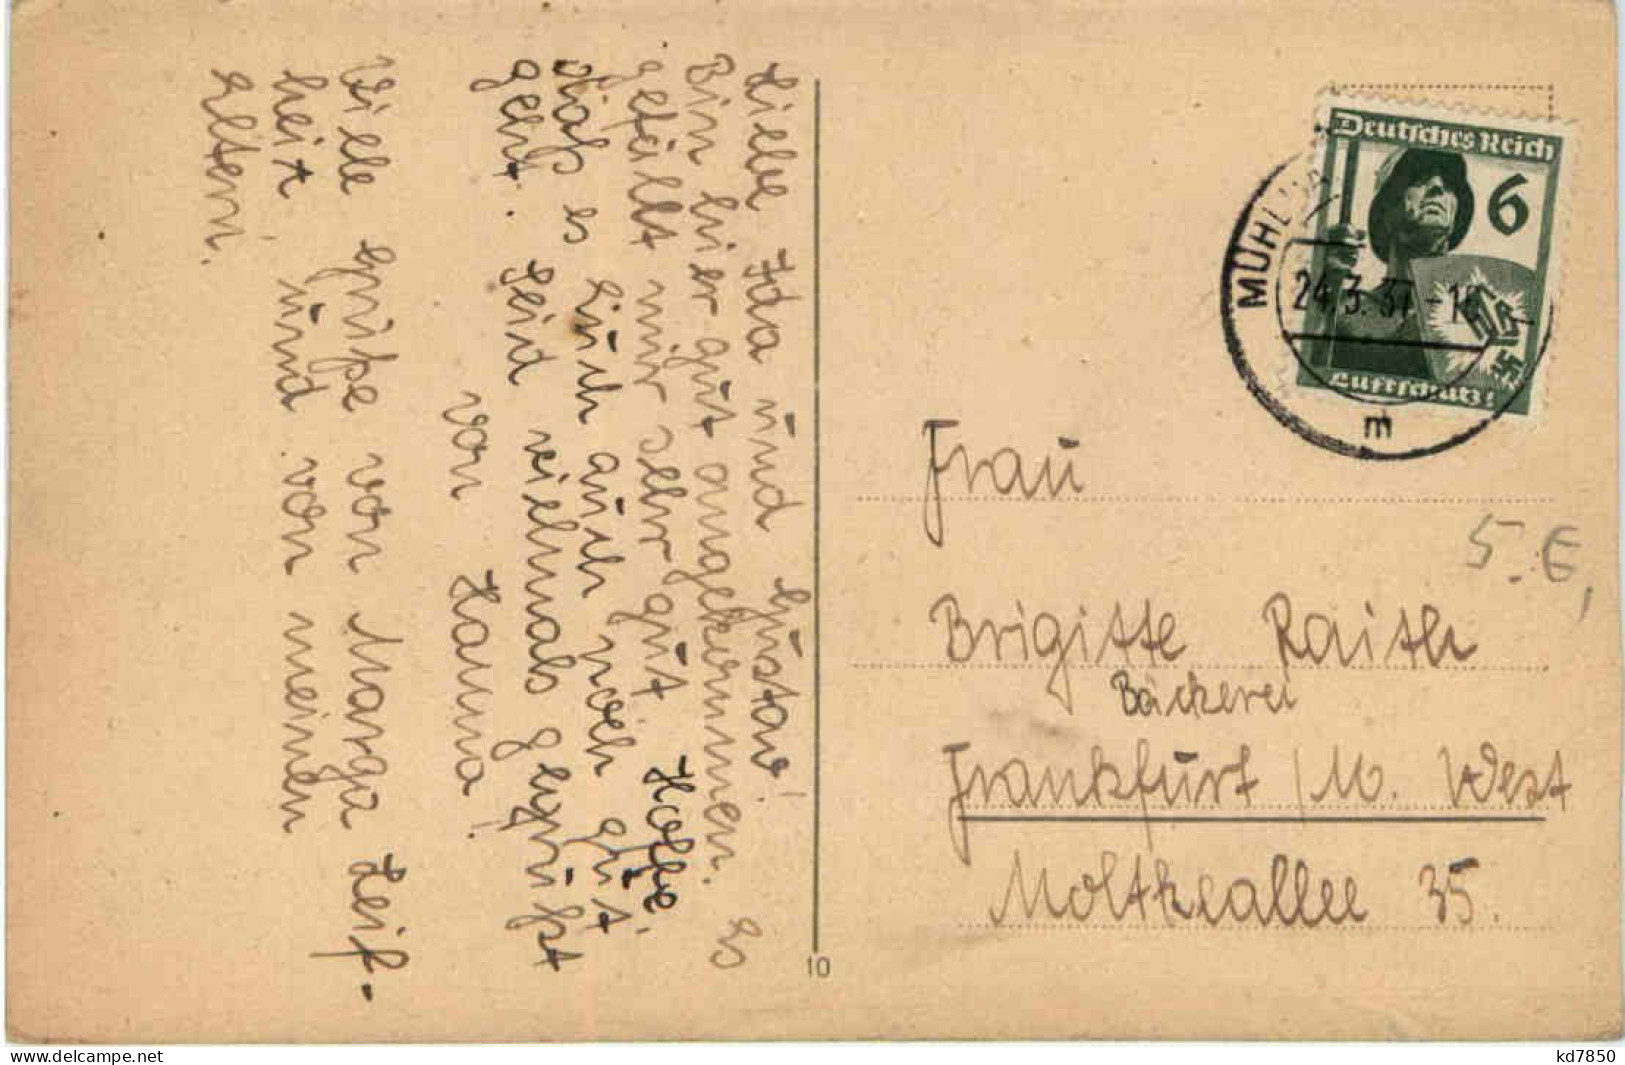 Liebe Ida und Gustav!
Bin hier gut angekommen. Es
gefällt mir sehr gut. Hoffe,
daß es Euch auch noch gut
geht. Seid vielmals gegrüßt
von Hanna!
Viele Grüße von Marga Leif-
heit und von meinen
Eltern.
Deutsches Reich
6
Luftschutz!
MÜHL
24.3.37.-16
m
Frau
5.€,
Brigitte Raith
Bäckerei
Frankfurt /M. West
Moltkeallee 35.
10
delcampe.net
kd7850